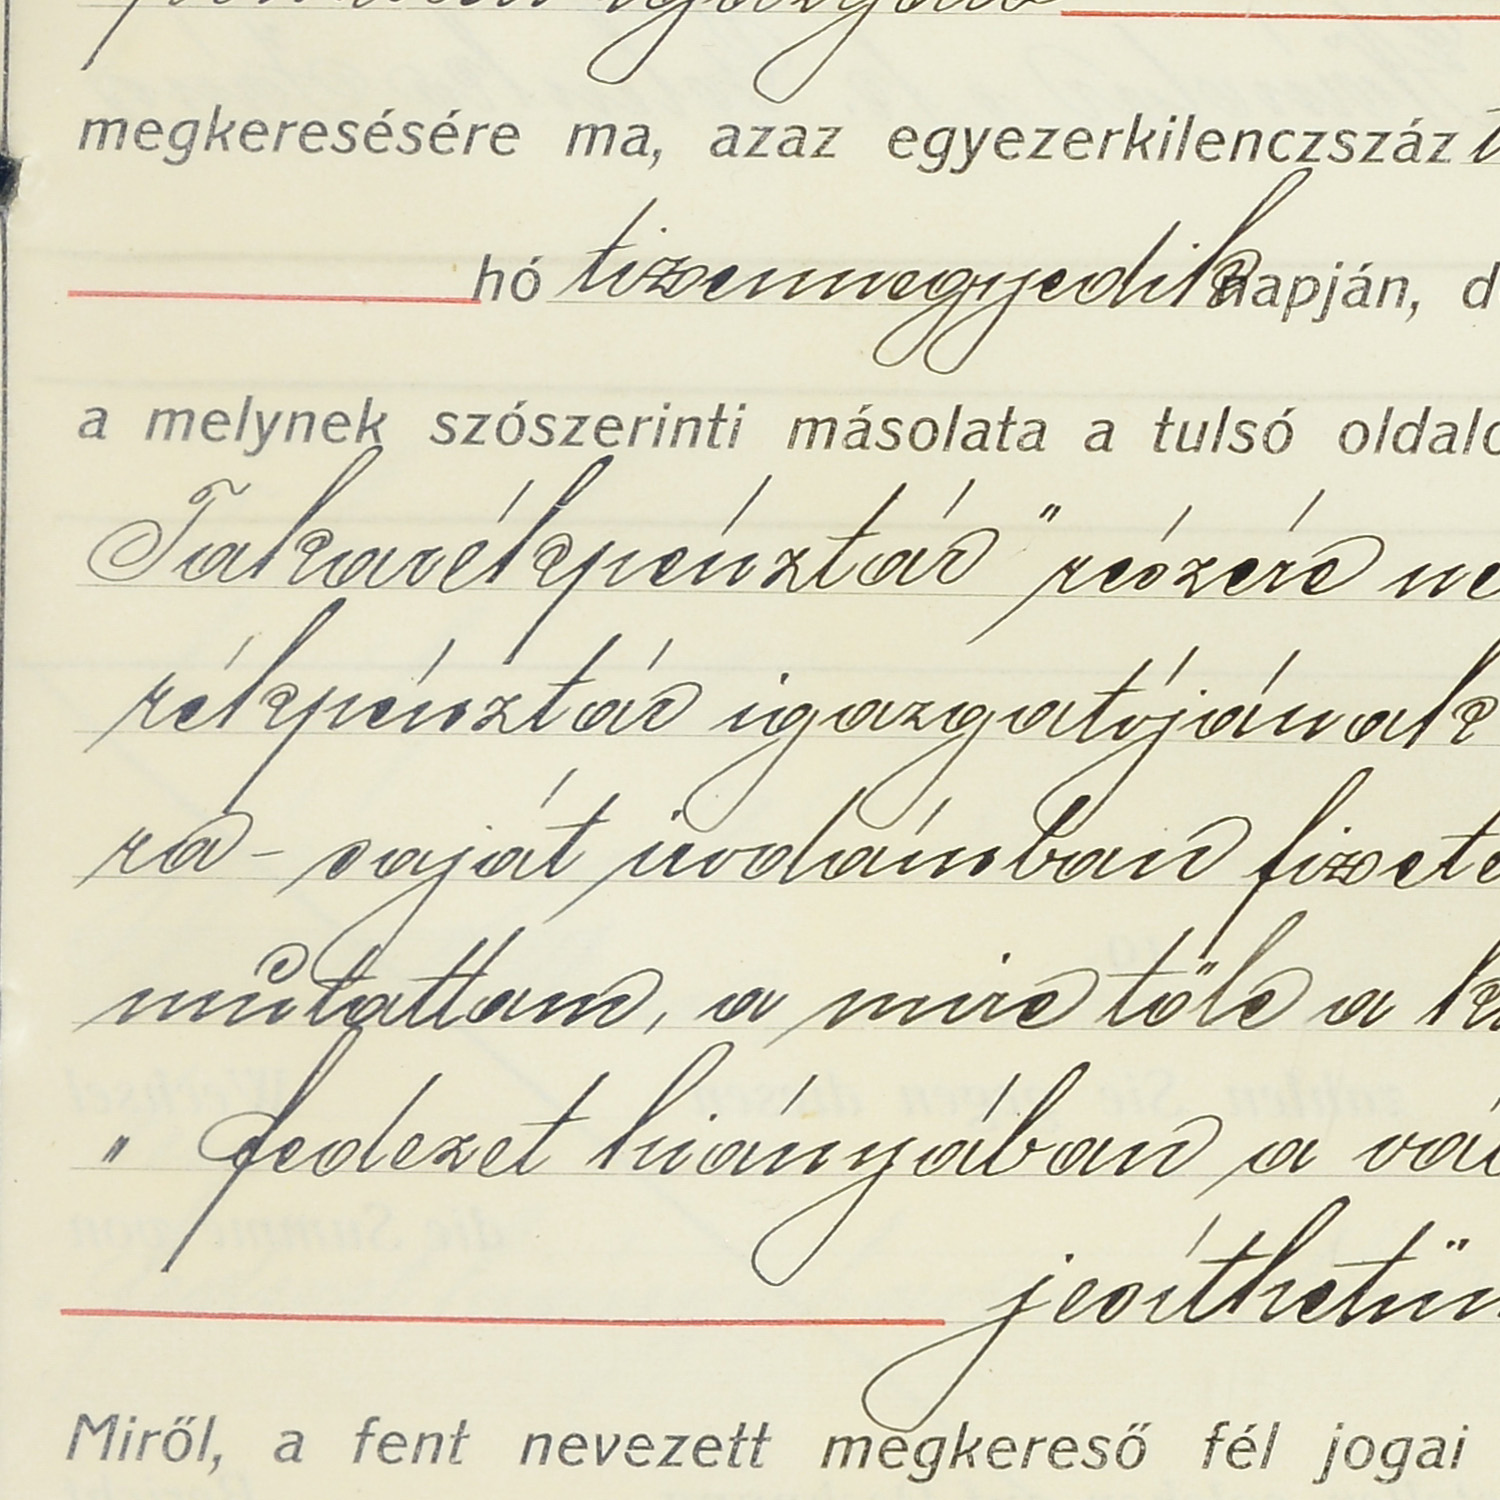 igazgató
megkeresésére ma, azaz egyezerkilenczszáz
hó tizennegyedik napján, d
a melynek szószerinti másolata a tulsó oldalo
Takarékpénztár" részére ne
rékpénztár igazgatójának
ra - saját irodámban fizete
mutattam, a mire tőle a k
" fedezet hiányában a vál
jesíthetün
Miről, a fent nevezett megkereső fél jogai